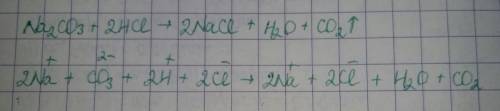 Na₂CO₃ + 2HCl → 2NaCl + H₂O + CO₂↑
2Na⁺ + CO₃²⁻ + 2H⁺ + 2Cl⁻ → 2Na⁺ + 2Cl⁻ + H₂O + CO₂